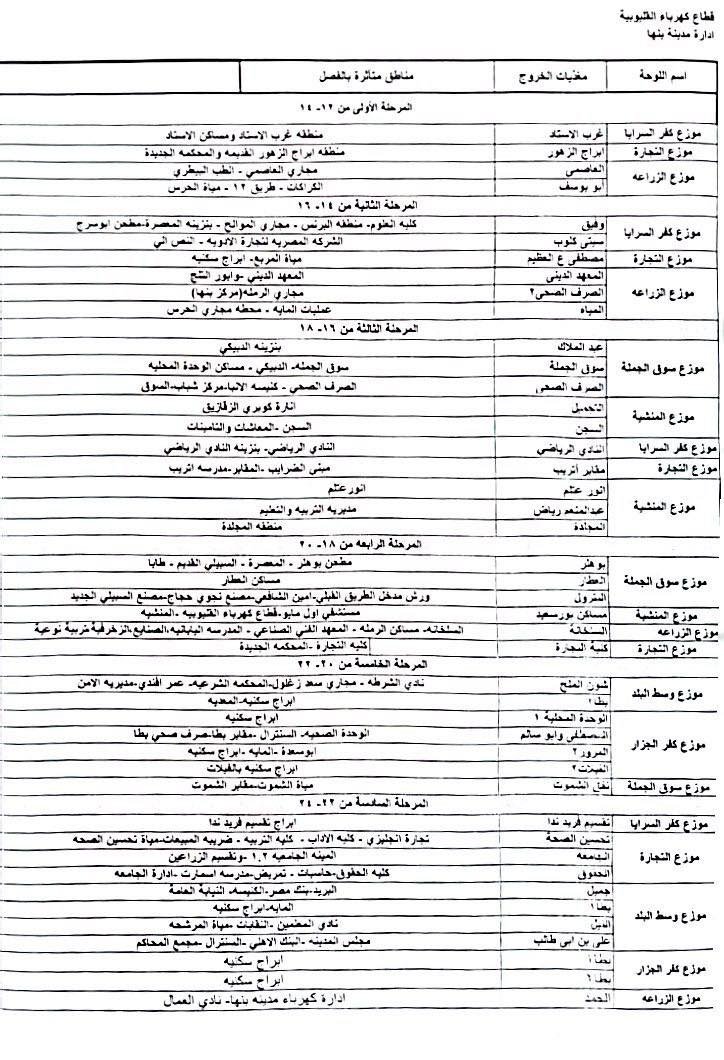 قطاع كهرباء القليوبية
ادارة مدينة بنها
اسم اللوحة مغذيات الخروج مناطق متأثرة بالفصل
المرحلة الأولى من ١٢- ١٤
موزع كفر السرايا غرب الاستاد منطقه غرب الاستاد ومساكن الاستاد
موزع التجارة ابراج الزهور منطقه ابراج الزهور القديمه والمحكمه الجديدة
موزع الزراعه العاصمى مجاري العاصمي - الطب البيطري
أبو يوسف الكراكات - طريق ١٢ - مياة الحرس
المرحلة الثانية من ١٤- ١٦
موزع كفر السرايا وفيق كليه العلوم- منطقه البرنس - مجاري الموالح - بنزينه المعصرة-مطحن ابوسرح
سيتى كلوب الشركه المصريه لتجارة الادويه - النص الي
موزع التجارة مصطفى ع العظيم مياة المربع- ابراج سكنيه
موزع الزراعه المعهد الدينى المعهد الديني -وابور الثلج
الصرف الصحى٢ مجاري الرمله(مركز بنها)
المياه عمليات المايه - محطه مجاري الحرس
المرحلة الثالثة من ١٦- ١٨
موزع سوق الجملة عبد الملاك بنزينه الدبيكي
سوق الجملة سوق الجمله- الدبيكي - مساكن الوحدة المحليه
الصرف الصحى الصرف الصحي - كنيسه الانبا-مركز شباب-السوق
موزع المنشية التجميل انارة كوبري الزقازيق
السجن السجن - المعاشات والتامينات
موزع كفر السرايا النادي الرياضي النادي الرياضي- بنزينه النادي الرياضي
موزع التجارة مقابر أتريب مبنى الضرايب -المقابر-مدرسه اتريب
موزع المنشية انور عتلم انورعتلم
عبدالمنعم رياض مديريه التربيه والتعليم
المجلدة منطقه المجلدة
المرحلة الرابعه من ١٨- ٢٠
موزع سوق الجملة بوهلر مطحن بوهلر - المعصرة - السبيلي القديم - طابا
العطار مساكن العطار
البترول ورش مدخل الطريق القبلي-امين الشافعي-مصنع نجوي حجاج-مصنع السبيلي الجديد
موزع المنشية مساكن بورسعيد مستشفي اول مايو-قطاع كهرباء القليوبيه - المنشيه
موزع الزراعه السلخانة السلخانه- مساكن الرمله - المعهد الفني الصناعي - المدرسه اليابانيه،الصنايع،الزخرفية تربية نوعية
موزع التجارة كلية التجارة كليه التجارة -المحكمه الجديدة
المرحلة الخامسة من ٢٠- ٢٢
موزع وسط البلد شون الملح نادي الشرطه - مجاري سعد زغلول-المحكمه الشرعيه- عمر افندي-مديريه الامن
بطا١ ابراج سكنيه-المعديه
موزع كفر الجزار الوحدة المحلية ١ ابراج سكنيه
المصطفى وابو سالم الوحدة الصحيه- السنترال -مقابر بطا-صرف صحي بطا
المرور٢ ابوسعدة -المايه-ابراج سكنيه
الفيلات٢ ابراج سكنيه بالفيلات
موزع سوق الجملة نفق الشموت مياة الشموت-مقابر الشموت
المرحلة السادسة من ٢٢- ٢٤
موزع كفر السرايا تقسيم فريد ندا ابراج تقسيم فريد ندا
موزع التجارة تحسين الصحة تجارة انجليزي - كليه الآداب - كليه التربيه - ضريبه المبيعات-مياة تحسين الصحه
الجامعه المينه الجامعيه ١،٢ -وتقسيم الزراعين
الحقوق كليه الحقوق-حاسبات - تمريض-مدرسه اسمارت -ادارة الجامعه
موزع وسط البلد جميل البريد-بنك مصر-الكنيسه- النيابة العامة
بطا١ المايه-ابراج سكنيه
النيل نادي المعلمين -النقابات -مياة المرشحه
على بن ابى طالب مجلس المدينه - البنك الاهلي -السنترال -مجمع المحاكم
موزع كفر الجزار بطا١ ابراج سكنيه
بطا٢ ابراج سكنيه
موزع الزراعه الحمد ادارة كهرباء مدينه بنها- نادي العمال